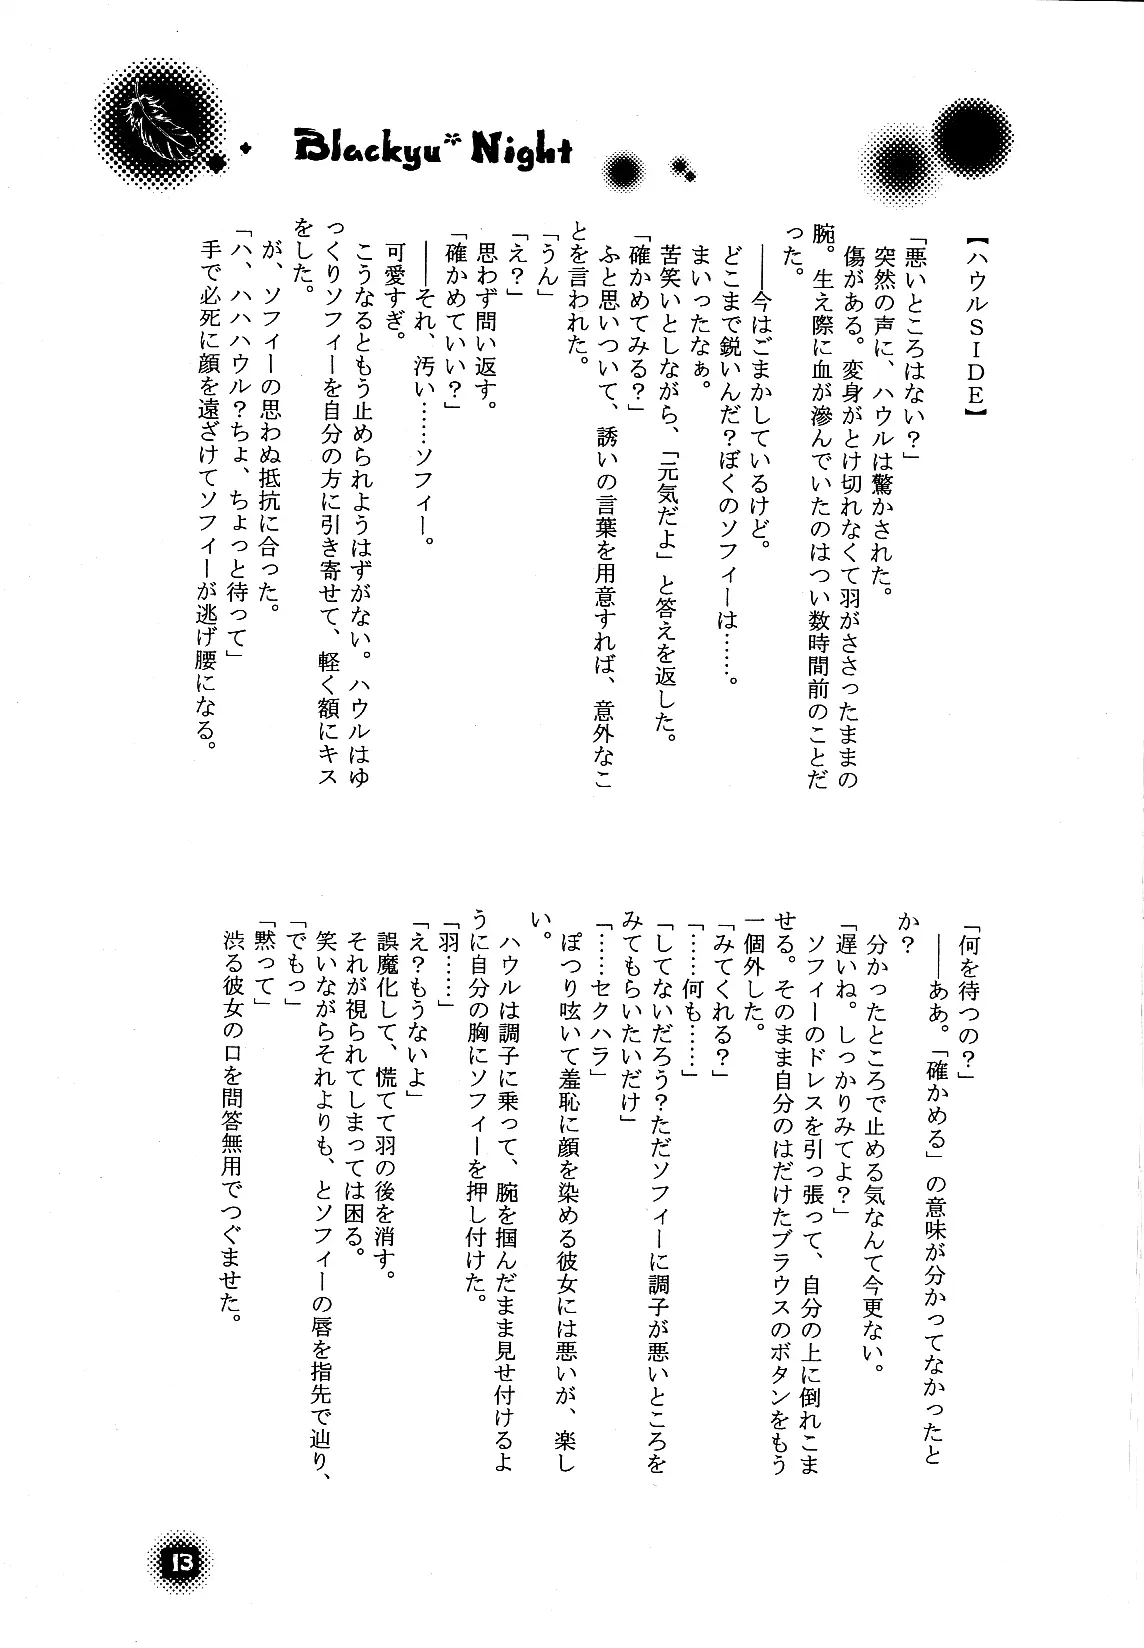 Blackyu* Night
【ハウルSIDE】
「悪いところはない？」
突然の声に、ハウルは驚かされた。
傷がある。変身がとけ切れなくて羽がささったままの
腕。生え際に血が滲んでいたのはつい数時間前のことだ
った。
――今はごまかしているけど。
どこまで鋭いんだ？ぼくのソフィーは……。
まいったなぁ。
苦笑いとしながら、「元気だよ」と答えを返した。
「確かめてみる？」
ふと思いついて、誘いの言葉を用意すれば、意外なこ
とを言われた。
「うん」
「え？」
思わず問い返す。
「確かめていい？」
――それ、汚い……ソフィー。
可愛すぎ。
こうなるともう止められようはずがない。ハウルはゆ
っくりソフィーを自分の方に引き寄せて、軽く額にキス
をした。
が、ソフィーの思わぬ抵抗に合った。
「ハ、ハハハウル？ちょ、ちょっと待って」
手で必死に顔を遠ざけてソフィーが逃げ腰になる。
「何を待つの？」
――ああ。「確かめる」の意味が分かってなかったと
か？
分かったところで止める気なんて今更ない。
「遅いね。しっかりみてよ？」
ソフィーのドレスを引っ張って、自分の上に倒れこま
せる。そのまま自分のはだけたブラウスのボタンをもう
一個外した。
「みてくれる？」
「……何も……」
「してないだろう？ただソフィーに調子が悪いところを
みてもらいたいだけ」
「……セクハラ」
ぽつり呟いて羞恥に顔を染める彼女には悪いが、楽し
い。
ハウルは調子に乗って、腕を掴んだまま見せ付けるよ
うに自分の胸にソフィーを押し付けた。
「羽……」
「え？もうないよ」
誤魔化して、慌てて羽の後を消す。
それが視られてしまっては困る。
笑いながらそれよりも、とソフィーの唇を指先で辿り、
「でもっ」
「黙って」
渋る彼女の口を問答無用でつぐませた。
13